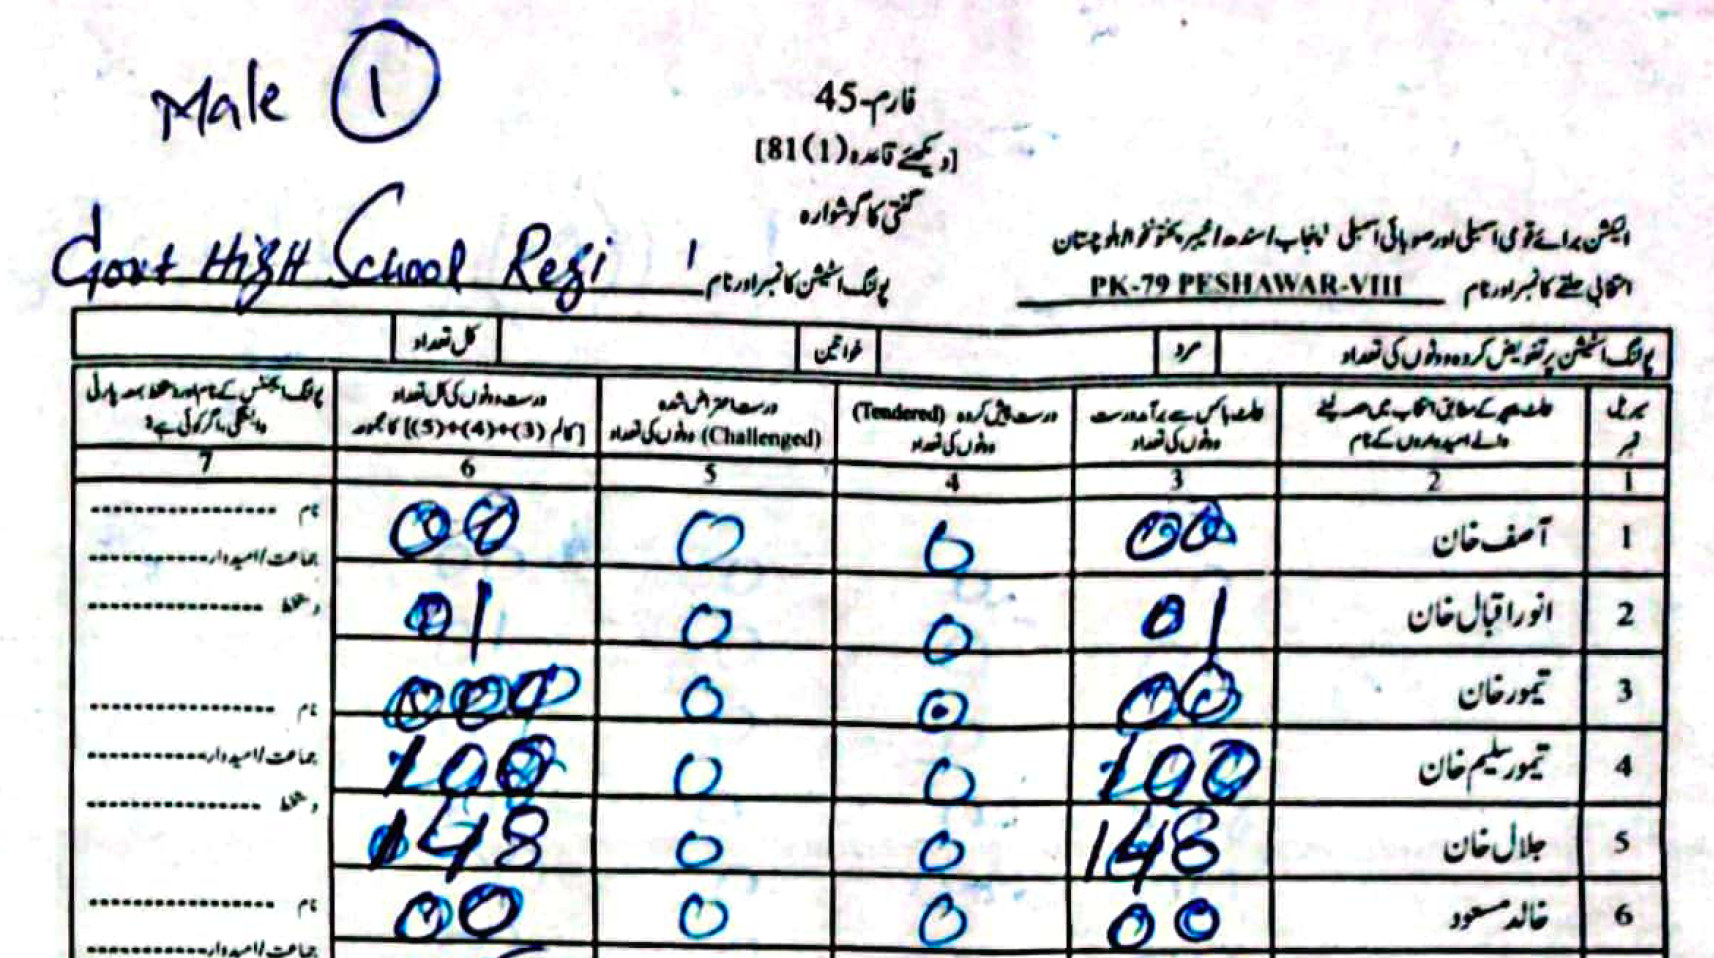 Male 1
فارم-45
[دیکھئے قاعدہ 81(1)]
گنتی کا گوشوارہ
الیکشن برائے قومی اسمبلی اور صوبائی اسمبلی پنجاب/سندھ/خیبر پختونخوا/بلوچستان
انتخابی حلقے کا نمبر اور نام PK-79 PESHAWAR-VIII
پولنگ اسٹیشن کا نمبر اور نام Govt High School Regi 1
پولنگ اسٹیشن پر تفویض کردہ ووٹوں کی تعداد مرد خواتین کل تعداد
سیریل نمبر
بیلٹ پیپر کے مطابق انتخاب میں حصہ لینے والے امیدواروں کے نام
بیلٹ باکس سے برآمد درست ووٹوں کی تعداد
درست پیش کردہ (Tendered) ووٹوں کی تعداد
درست اعتراض شدہ (Challenged) ووٹوں کی تعداد
درست ووٹوں کی کل تعداد [کالم (3)+(4)+(5) کا مجموعہ]
پولنگ ایجنٹس کے نام اور دستخط بمعہ پارٹی وابستگی، اگر کوئی ہے؟
1 2 3 4 5 6 7
1 آصف خان 00 0 0 00 نام
جماعت/امیدوار
2 انور اقبال خان 01 0 0 01 دستخط
3 تیمور خان 00 0 0 000 نام
4 تیمور سلیم خان 100 0 0 100 جماعت/امیدوار
دستخط
5 جلال خان 148 0 0 148
6 خالد مسعود 00 0 0 00 نام
جماعت/امیدوار